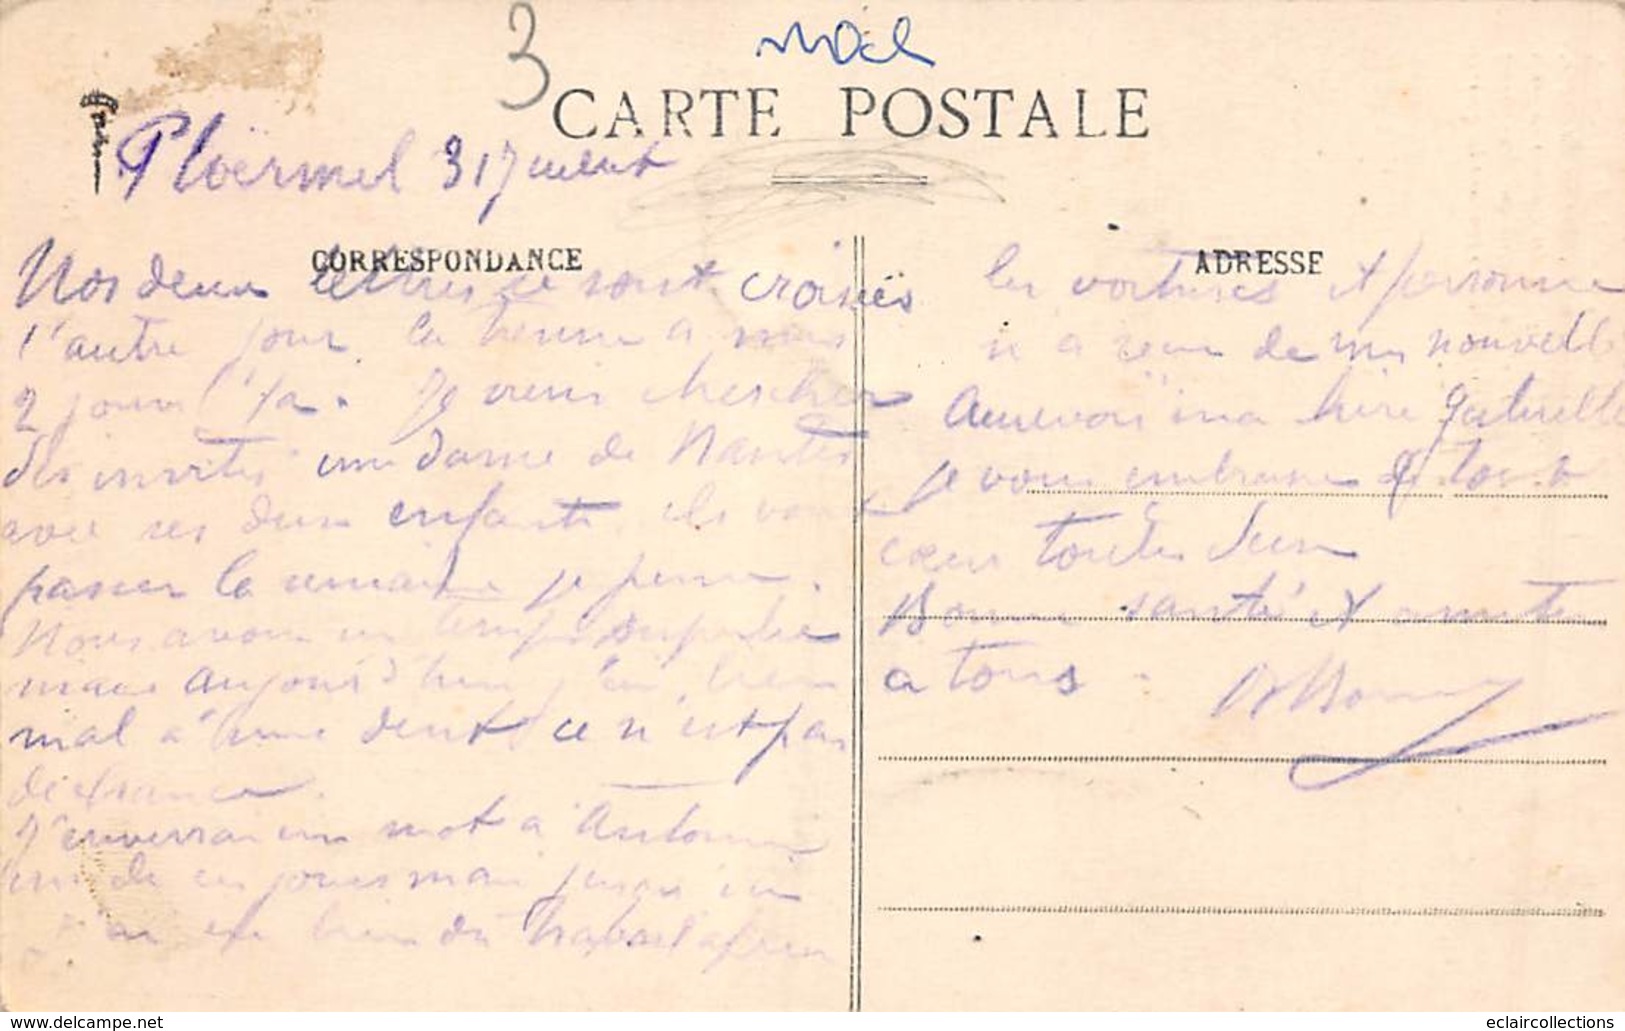 3
CARTE POSTALE
Ploërmel 31 Juillet
CORRESPONDANCE
Nos deux lettres se sont croisées
l'autre jour la tienne a mis
2 jours Je viens chercher
des invités une dame de Nantes
avec ses deux enfants ils vont
passer la semaine je pense.
Nous avons un temps superbe
mais aujourd'hui j'ai bien
mal à une dent ce n'est pas
de chance.
J'enverrai un mot a
un de ces jours mais jusqu'ici
j'ai eu bien du travail
ADRESSE
les voitures et personne
n'a de mes nouvelles
Aurevoir ma
je vous embrasse de tout
cœur toutes deux
Bonne santé et amitiés
a tous
www.delcampe.net
eclaircollections